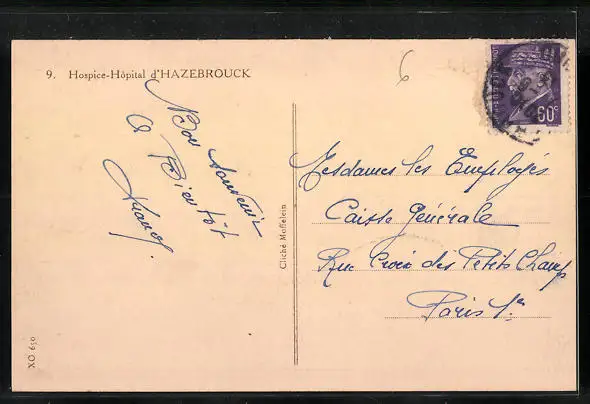 9. Hospice-Hôpital d'HAZEBROUCK
6
Bon souvenir
A Bientôt
Mesdames les Employés
Caisse Générale
Rue Croix des Petits Champs
Paris 1er
Cliché Maffelein
XO 650
60c